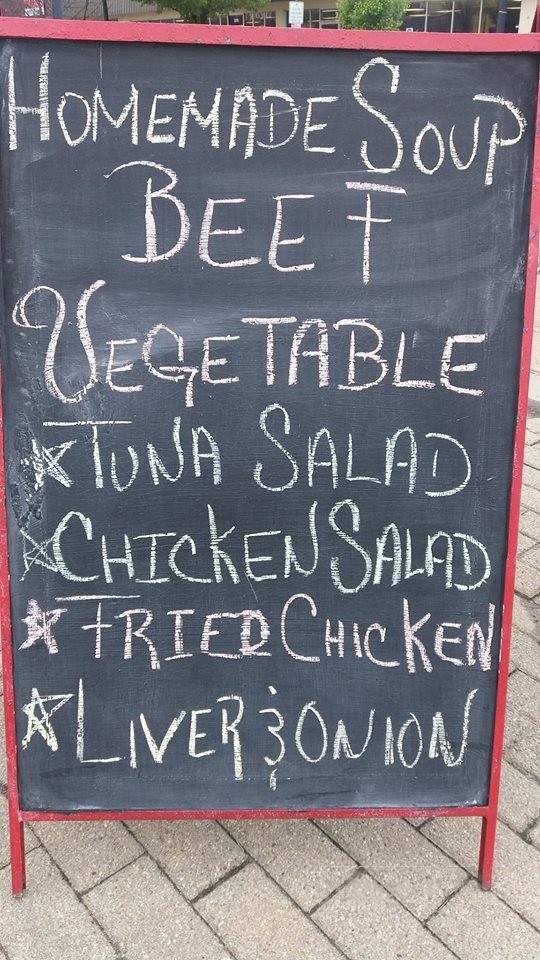 HOMEMADE SOUP
BEEF
VEGETABLE
☆ TUNA SALAD
☆ CHICKEN SALAD
☆ FRIED CHICKEN
☆ LIVER & ONION